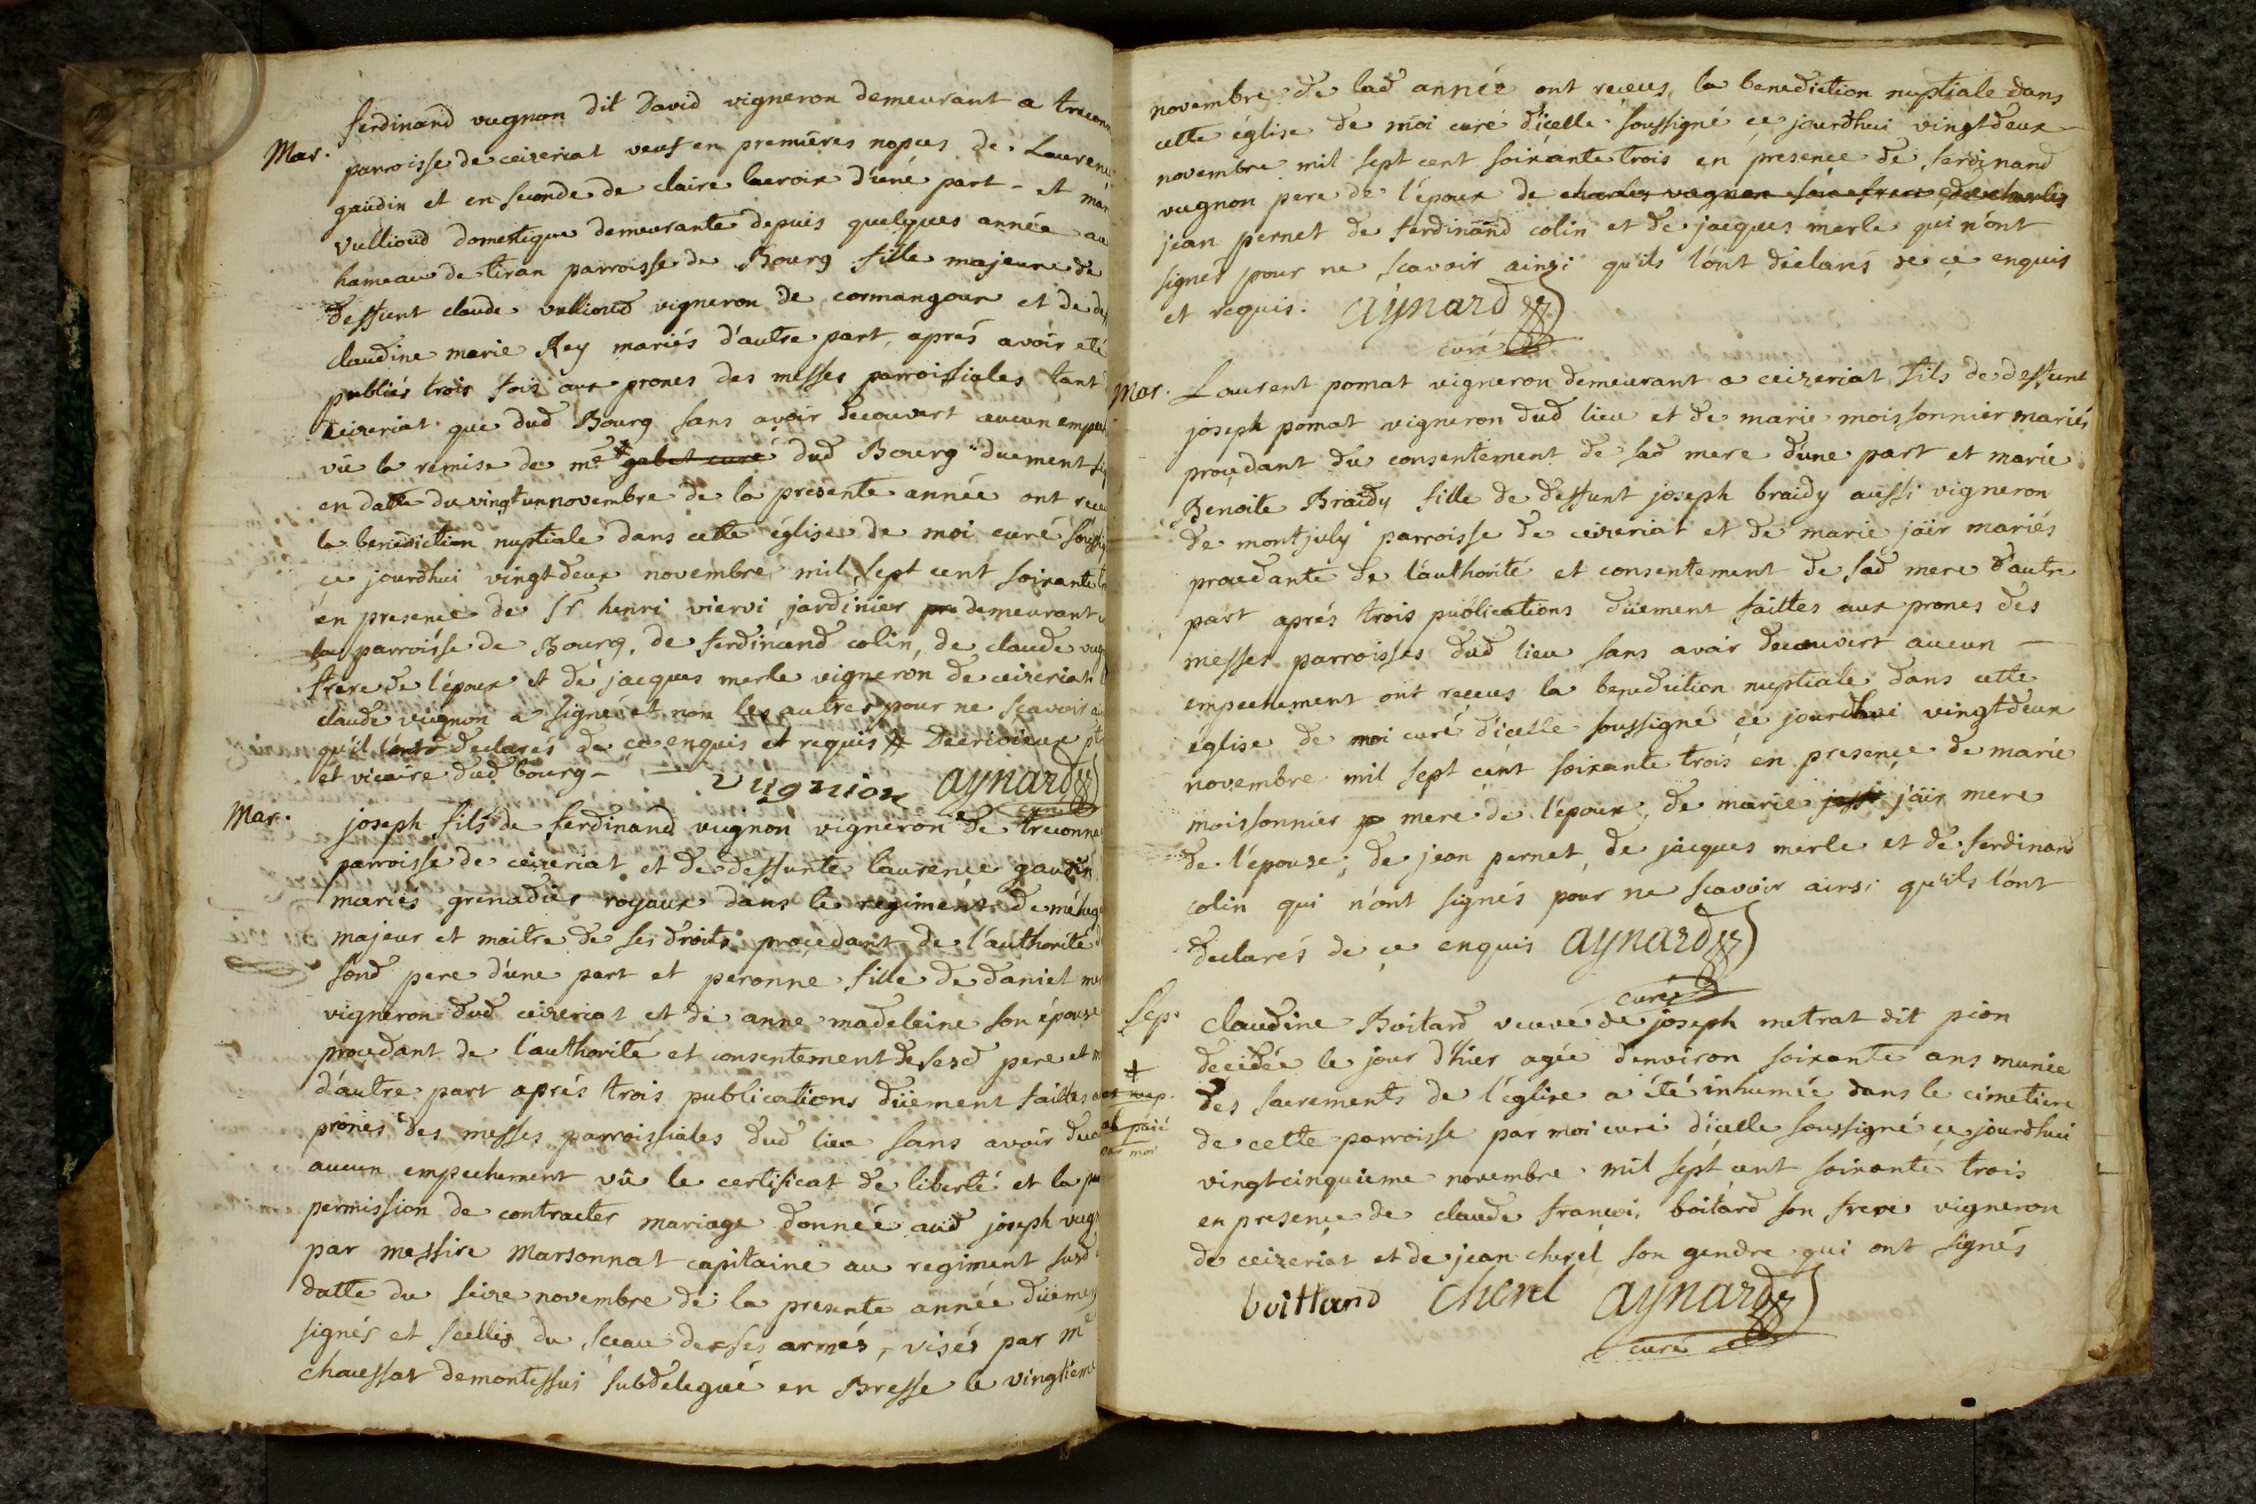 ferdinand vugnon dit David vigneron demeurant a treconn
Mar. parroisse de ceizeriat veuf en premières nopces de Laurence
gaudin et en seconde de claire lacroix d'une part - et mar
vullioud domestique demeurante depuis quelques année au
hameau de tiran parroisse de Bourg fille majeure de
deffunt claude vullioud vigneron de cormangoux et de def
claudine marie Rey mariés d'autre part, aprés avoir eté
publiés trois fois aux prones des messes parroissiales tant
ceizeriat que dud Bourg sans avoir decouvert aucun empe
vû la remise de me # gabet curé dud Bourg duement sig
en datte du vingt un novembre de la presente année ont receu
la benediction nuptiale dans cette église de moi curé soussig
ce jourdhui vingtdeux novembre mil sept cent soixante tr
en presence de Sr henri viervi jardinier demeurant
parroisse de Bourg, de ferdinand colin, de claude vugn
frere de l'époux et de jacques merle vigneron de ceizeriat
claude vugnon a signé et non les autres pour ne scavoir a
qu'il l'ont declarés de ce enquis et requis # Decrivieux ptr
et vicaire dud bourg -
vugnion aynard
curé
Mar. joseph fils de ferdinand vugnon vigneron de treconna
parroisse de ceizeriat et de deffunte laurence gaudin
mariés grenadier royaux dans le regiment de
majeur et maitre de ses droits procedant de l'authorité d
sond pere d'une part et peronne fille de daniel me
vigneron dud ceizeriat et de anne madeleine son épouse
procedant de l'authorité et consentement de sesd pere et m
d'autre part aprés trois publications düement faittes au
prônes des messes parroissiales dud lieu sans avoir dec
aucun empechement vû le certificat de liberté et la
permission de contracter mariage donnée aud joseph vugn
par messire Marsonnat capitaine au regiment susd
datte du seize novembre de la presente année düemen
signés et scellés du sceau de ses armés, visés par me
chaussat demontessui subdelegué en Bresse le vingtieme
novembre de lad année ont receus la benediction nuptiale dans
cette église de moi curé d'icelle soussigné ce jourdhui vingtdeux
novembre mil sept cent soixante trois en presence de ferdinand
vugnon pere de l'époux de charles vugnon son frere de charles
jean pernet de ferdinand colin et de jacques merle qui n'ont
signés pour ne scavoir ainsi qu'ils l'ont déclarés de ce enquis
et requis. aynard
curé
Mar. Laurent pomat vigneron demeurant a ceizeriat fils de deffunt
joseph pomat vigneron dud lieu et de marie moissonnier mariés
procedant du consentement de sad mere d'une part et marie
Benoite Braidy fille de deffunt joseph braidy aussi vigneron
de montjuly parroisse de ceizeriat et de marie jair mariés
procedante de l'authorité et consentement de sad mere d'autre
part aprés trois publications düement faittes aux prones des
messes parroisses dud lieu sans avoir decouvert aucun
empechement ont receus la benediction nuptiale dans cette
église de moi curé d'icelle soussigné ce jourdhui vingtdeux
novembre mil sept cent soixante trois en presence de marie
moissonnier mere de l'époux, de marie jair mere
de l'épouse, de jean pernet, de jacques merle et de ferdinand
colin qui n'ont signés pour ne scavoir ainsi qu'ils l'ont
declarés de ce enquis aynard
curé
Sep. claudine Boitard veuve de joseph metrat dit pion
decidée le jour d'hier agée d'environ soixante ans munie
des sacrements de l'église a été inhumée dans le cimetiere
de cette parroisse par moi curé d'icelle soussigné ce jourdhui
vingtcinquieme novembre mil sept cent soixante trois
en presence de claude francois boitard son frere vigneron
de ceizeriat et de jean cherel son gendre qui ont signés
boittard cherel aynard
curé